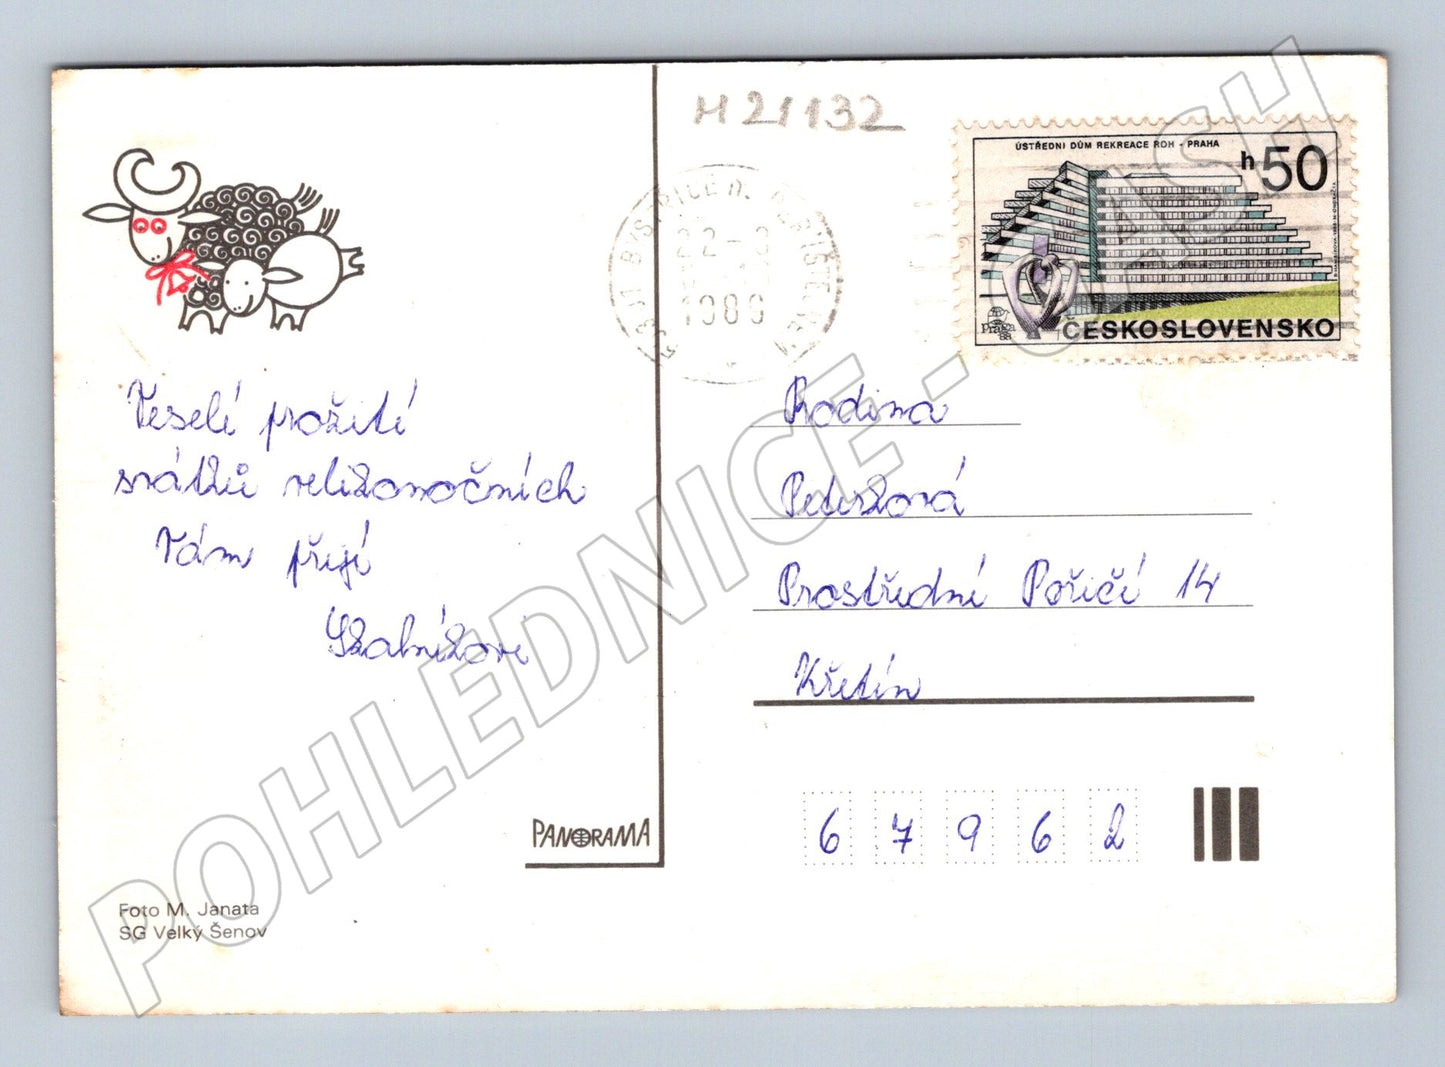 H 21132
ÚSTŘEDNI DŮM REKREACE ROH - PRAHA
h50
Praga
88
ČESKOSLOVENSKO
593 01 BYSTŘICE n. PERNŠTEJNEM
Veselé prožití
svátků velikonočních
Vám přejí
Skalníkovi
Rodina
Peterková
Prostřední Poříčí 14
Křetín
6 7 9 6 2
PANORAMA
Foto M. Janata
SG Velký Šenov
POHLEDNICE - CASH